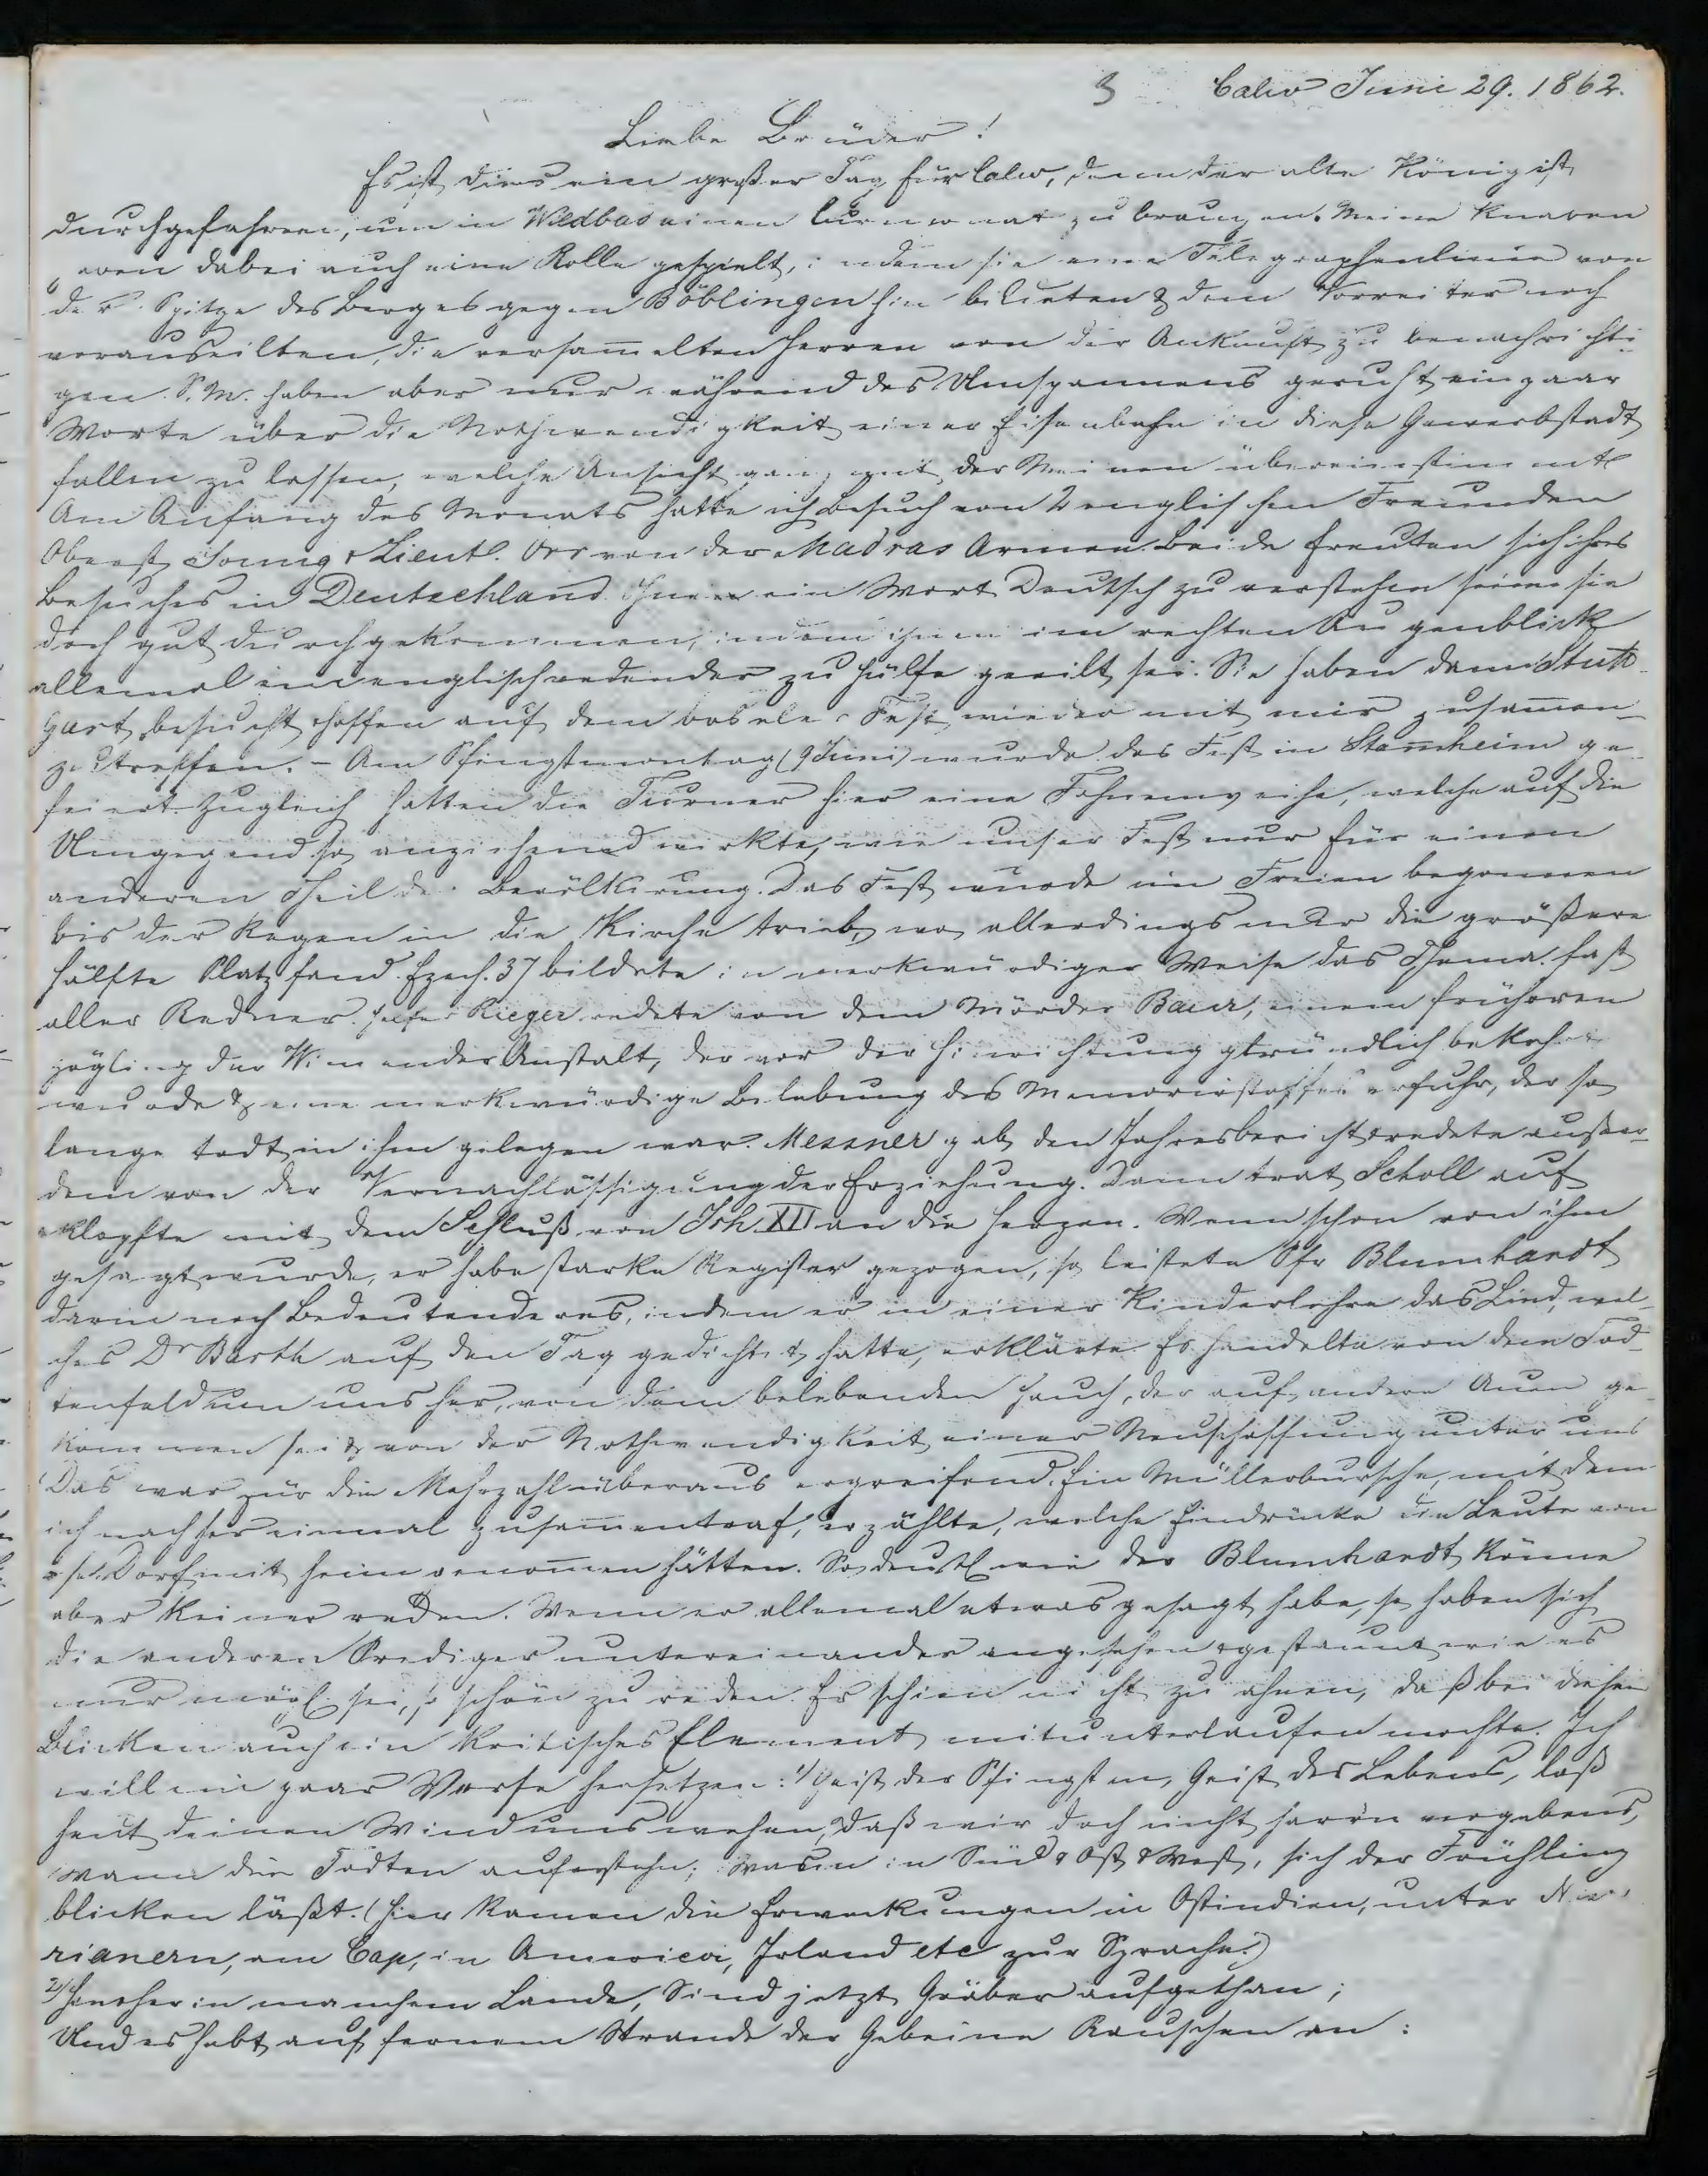 3 Calw Juni 29. 1862.
Liebe Brüder!
Es ist dies ein großer Tag für Calw, denn der alte König ist
durchgefahren, um in Wildbad einen Curmonat zu bringen. Meine Knaben
haben dabei auch eine Rolle gespielt, indem sie eine Telegraphenlinie von
der Spitze des Berges gegen Böblingen hin bildeten & dem Vorreiter noch
vorauseilten, die versam̅elten Herren von der Ankunft zu benachrichti-
gen. S. M. haben aber nur während des Umspannens geruht ein paar
Worte über die Nothwendigkeit einer Eisenbahn in diese Gewerbstadt
fallen zu lassen, welche Ansicht ganz mit der Meinen übereinstim̅ete
Am Anfang des Monats hatte ich Besuch von 2 englischen Freunden
Oberst Young & Lieut. Orr von der Madras Armee. Beide freuten sich ihres
Besuches in Deutschland. Ohne ein Wort Deutsch zu verstehen seien sie
doch gut durchgekommen, indem ihnen im rechten Augenblick
allemal ein englischredender zu Hülfe geeilt sei. Sie haben dann Stutt-
gart besucht & hoffen auf dem basele Fest wieder mit mir zusam̅en-
zutreffen. - Am Pfingstmontag (9 Juni) wurde das Fest in Stam̅heim ge-
feiert. Zugleich hatten die Turner hier eine Fahnenweihe, welche auf die
Umgegend so anziehend wirkte, wie unser Fest nur für einen
anderen Theil der Bevölkerung. Das Fest wurde im Freien begonnen
bis der Regen in die Kirche trieb, wo allerdings nur die größere
Hälfte Platz fand. Ezech. 37 bildete in merkwürdiger Weise das Thema fast
aller Redner. Helfer Rieger redete von dem Mörder Baur, einem früheren
Zögling der Winnender Anstalt, der vor der Hinrichtung gründlich bekehrt
wurde & eine merkwürdige Belebung des Memorirstoffes erfuhr, der so
lange todt in ihm gelegen war. Messner gab den Jahresbericht & redete außer-
dem von der Vernachlässigung der Erziehung. Dann trat Scholl auf
& klopfte mit dem Schluß von Joh. XII an die Herzen. Wenn schon von ihm
gesagt wurde, er habe starke Register gezogen, so leistete Pfr Blumhardt
darin noch Bedeutenderes, indem er in einer Kinderlehre das Lied, wel-
ches Dr Barth auf den Tag gedichtet hatte, erklärte. Es handelte von dem Tod-
tenfeld um uns her, von dem belebenden Hauch, der auf andere Auen ge-
kommen sei & von der Nothwendigkeit einer Neuschaffung unter uns
Das war für die Mehrzahl überaus ergreifend. Ein Müllerbursche, mit dem
ich nachher einmal zusam̅entraf, erzählte, welche Eindrücke die Leute von
s. Dorf mit heim genom̅en hätten. So deutl wie der Blumhardt könne
aber keiner reden. Wenn er allemal etwas gesagt habe, so haben sich
die anderen Prediger untereinander angesehen & gestaunt wie es
nur mögl sei, so schön zu reden. Er schien nicht zu ahnen, daß bei diesen
Blicken auch ein kritisches Element mitunterlaufen mochte. Ich
will ein paar Verse hersetzen: 1) Geist der Pfingsten, Geist des Lebens, laß
heut deinen Wind uns wehen, Daß wir doch nicht harrn vergebens,
wann die Todten auferstehn; Wann in Süd & Ost & West, sich der Frühling
blicken läßt. (Hier kamen die Erweckungen in Ostindien, unter
rianern, am Cap, in America, Irland etc zur Sprache.)
2) Hinsher in manchem Lande, Sind jetzt Gräber aufgethan;
Und es hebt auf fernem Strande der Gebeine Rauschen an: